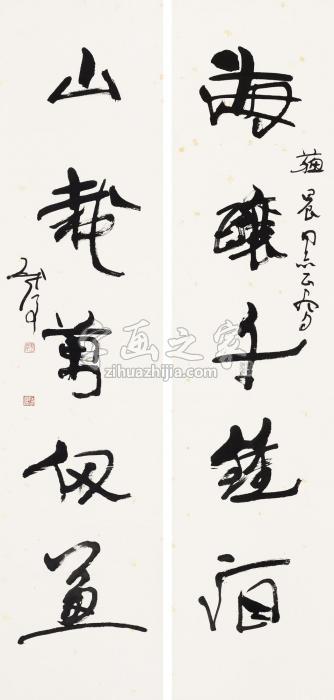 海釀千鍾酒
晨同志正
山栽萬仞蔥
字画之家
zihuazhijia.com